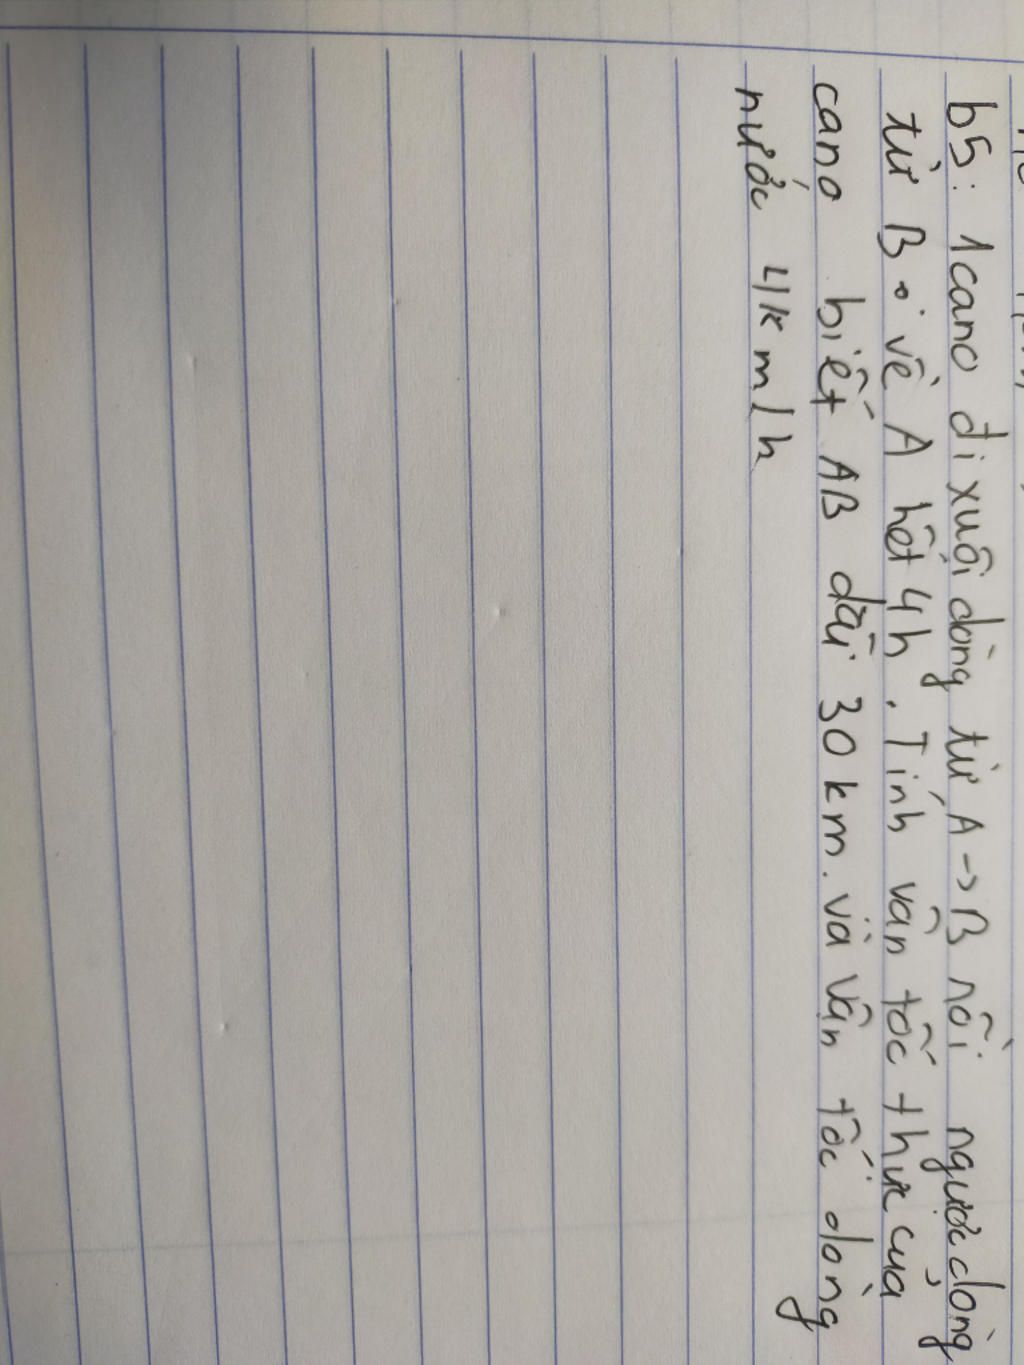 b5: 1 cano đi xuôi dòng từ A → B rồi ngược dòng
từ B về A hết 4h. Tính vân tốc thực của
cano biết AB dài 30km. và vân tốc dòng
nước 4km/h